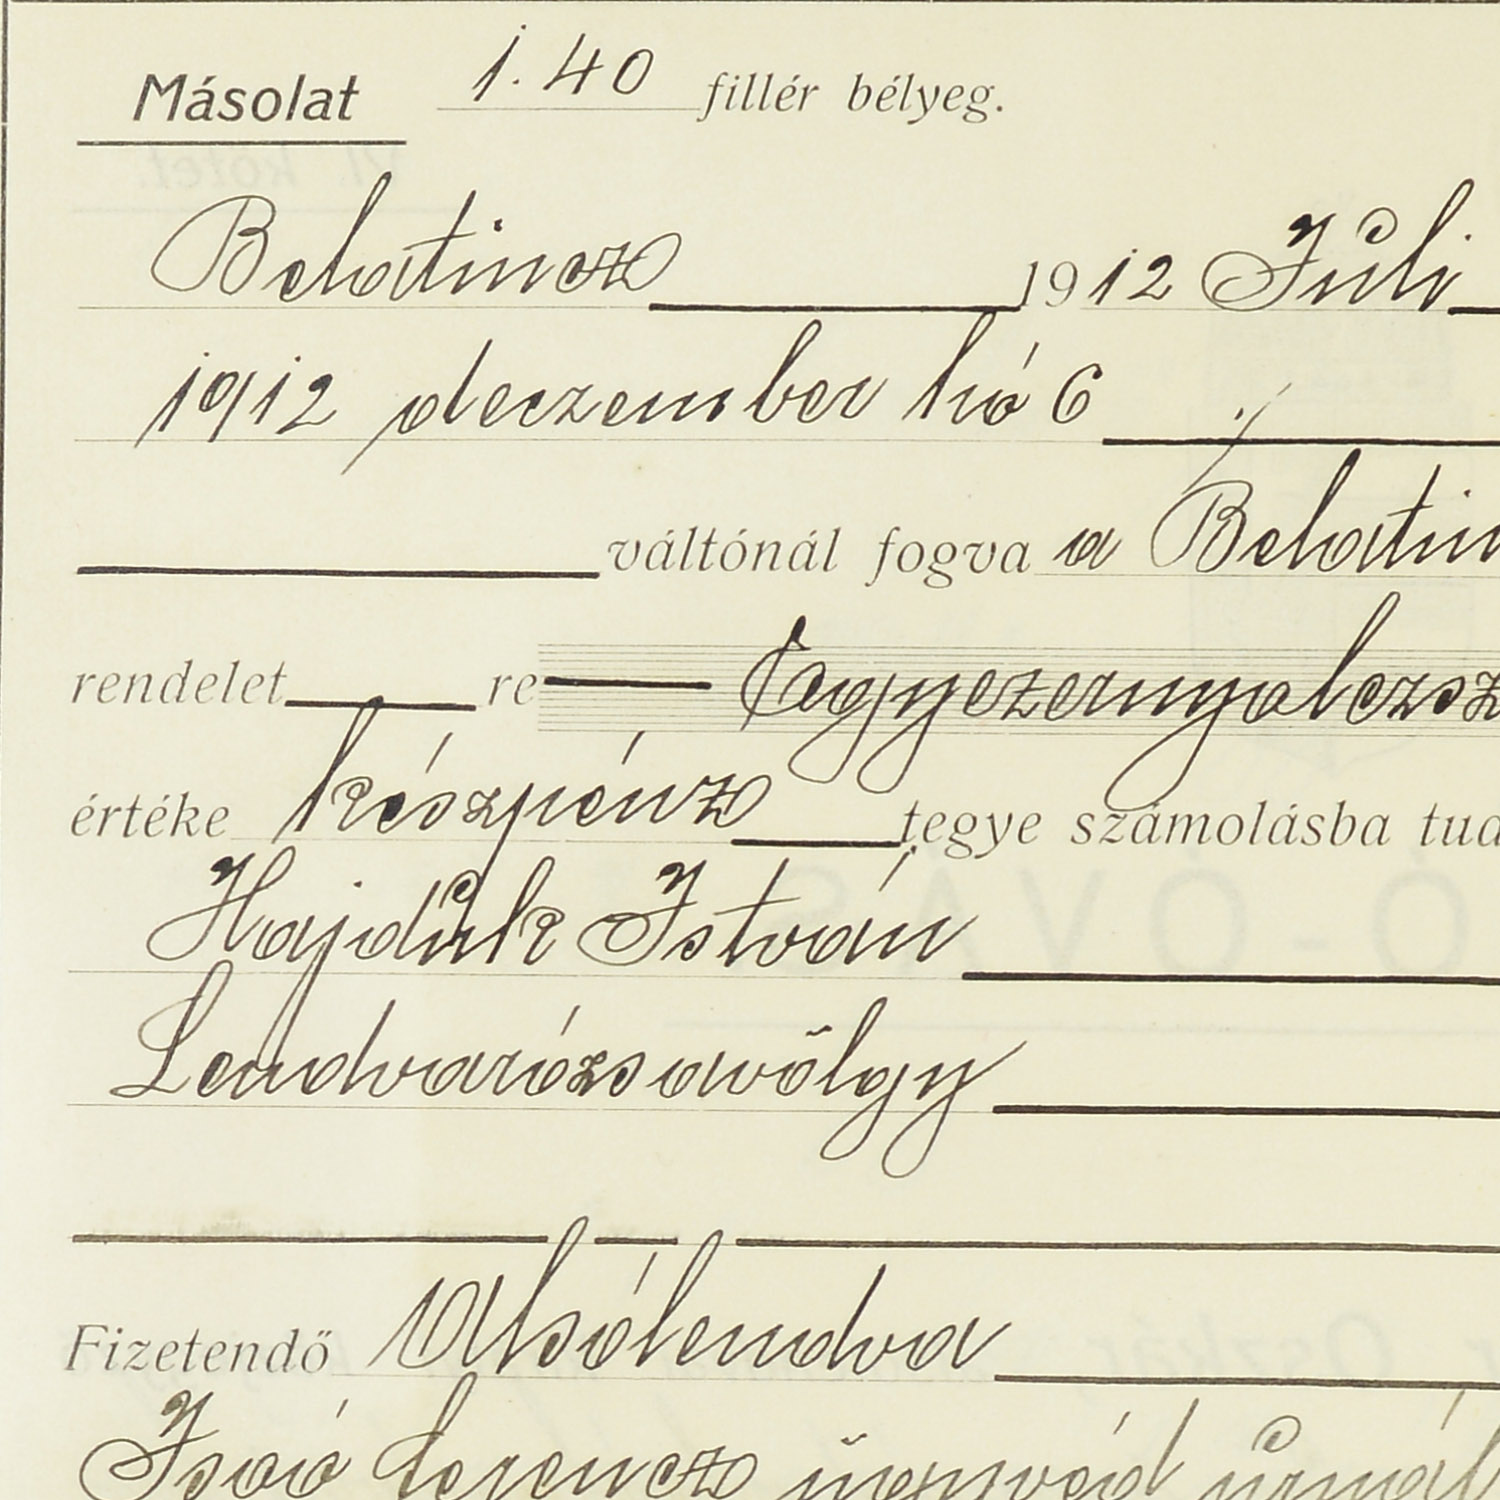 Másolat 1.40 fillér bélyeg.
Belatincz 1912 Juli
1912 deczember hó 6
váltónál fogva a Belatin
rendelet re Egyezernyolczsz
értéke készpénz tegye számolásba tud
Hajduk István
Lendvarózsavölgy
Fizetendő Alsólendva
Isoó Ferencz ügyvéd urnál